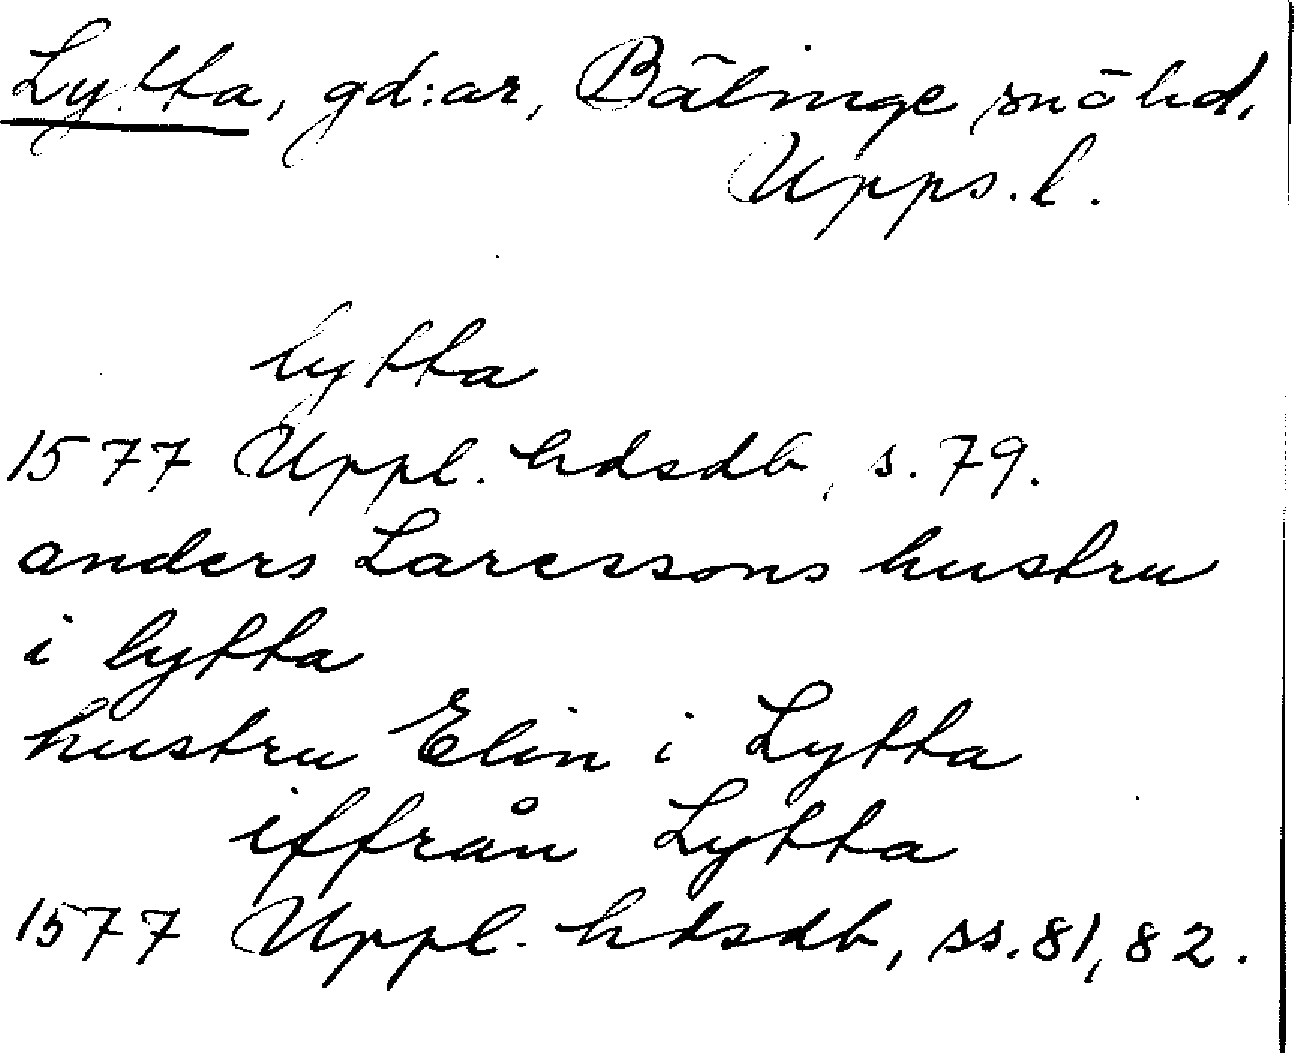 Lytta, gd:ar, Bälinge sn ö hd,
Upps. l.
lytta
1577 Uppl. hdsdb, s. 79.
anders Laressons hustru
i lytta
hustru Elin i Lytta
iffrån Lytta
1577 Uppl. hdsdb, ss. 81, 82.